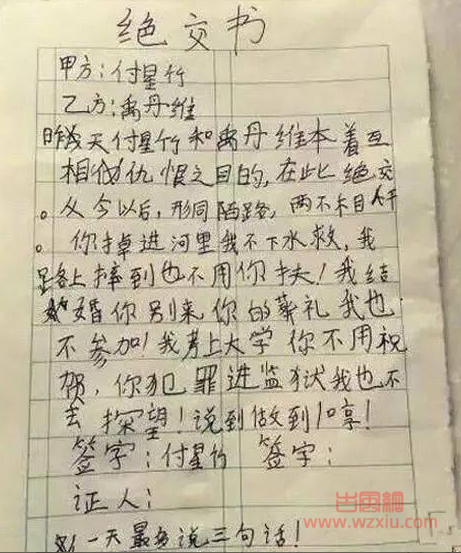 绝交书
甲方：付星竹
乙方：禹丹维
昨天付星竹和禹丹维本着互
相仇恨之目的，在此绝交
。从今以后，形同陌路，两不相干
。你掉进河里我不下水救，我
路上摔到也不用你扶！我结
婚你别来你的葬礼我也
不参加！我考上大学你不用祝
贺，你犯罪进监狱我也不
去探望！说到做到！哼！
签字：付星竹 签字：
证人：
一天最多说三句话！
出国网
www.wzxiu.com